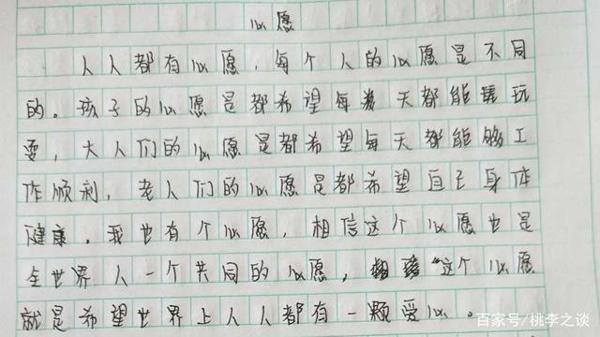 心愿
人人都有心愿，每个人的心愿是不同
的。孩子的心愿是都希望每天都能玩
耍，大人们的心愿是都希望每天都能够工
作顺利，老人们的心愿是都希望自己身体
健康。我也有个心愿，相信这个心愿也是
全世界人一个共同的心愿，“这个心愿
就是希望世界上人人都有一颗爱心。
百家号/桃李之谈